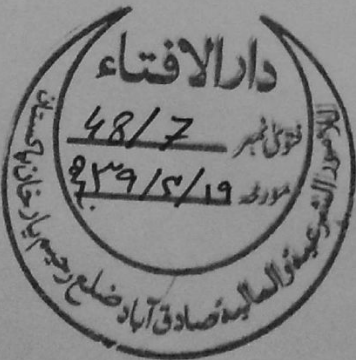 دار الافتاء
فتویٰ نمبر 48/7
مورخہ ۱۹/۳/۳۹ھ
للامور الشرعیۃ والمالیۃ صادق آباد ضلع رحیم یار خان پاکستان